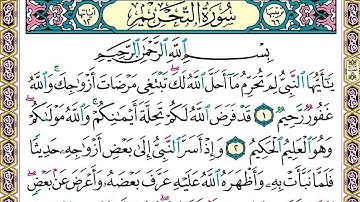 سُورَةُ التَّحْرِيمِ
بِسْمِ ٱللَّهِ ٱلرَّحْمَٰنِ ٱلرَّحِيمِ
يَٰٓأَيُّهَا ٱلنَّبِىُّ لِمَ تُحَرِّمُ مَآ أَحَلَّ ٱللَّهُ لَكَ ۖ تَبْتَغِى مَرْضَاتَ أَزْوَٰجِكَ ۚ وَٱللَّهُ
غَفُورٌ رَّحِيمٌ ١ قَدْ فَرَضَ ٱللَّهُ لَكُمْ تَحِلَّةَ أَيْمَٰنِكُمْ ۚ وَٱللَّهُ مَوْلَىٰكُمْ ۖ
وَهُوَ ٱلْعَلِيمُ ٱلْحَكِيمُ ٢ وَإِذْ أَسَرَّ ٱلنَّبِىُّ إِلَىٰ بَعْضِ أَزْوَٰجِهِۦ حَدِيثًا
فَلَمَّا نَبَّأَتْ بِهِۦ وَأَظْهَرَهُ ٱللَّهُ عَلَيْهِ عَرَّفَ بَعْضَهُۥ وَأَعْرَضَ عَنۢ بَعْضٍ ۖ